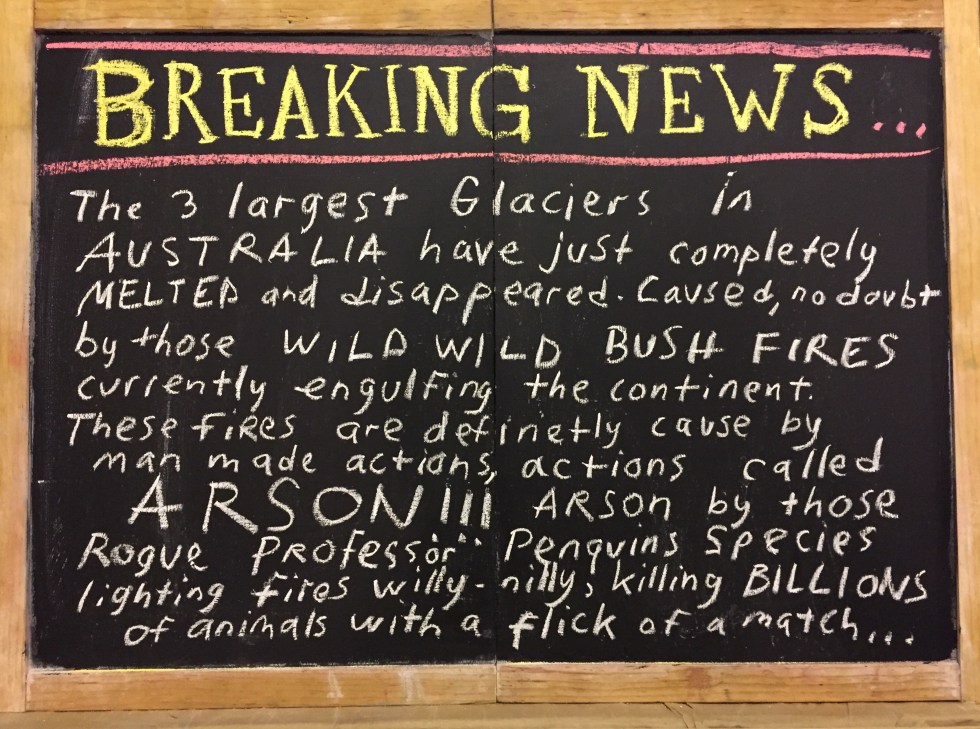 BREAKING NEWS...
The 3 largest Glaciers in
AUSTRALIA have just completely
MELTED and disappeared. Caused, no doubt
by those WILD WILD BUSH FIRES
currently engulfing the continent.
These fiRES are definetly cause by
man made actions, actions called
ARSON!!! ARSON by those
Rogue PROfessor Penquins Species
lighting fires willy-nilly, killing BILLIONS
of animals with a flick of a match...